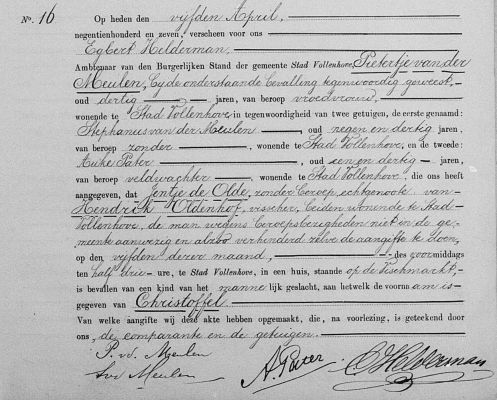 No. 16
Op heden den vijfden April,
negentienhonderd en zeven, verscheen voor ons
Egbert Helderman,
Ambtenaar van den Burgerlijken Stand der gemeente Stad Vollenhove, Pietertje van der
Meulen, bij de onderstaande bevalling tegenwoordig geweest,
oud dertig jaren, van beroep vroedvrouw,
wonende te Stad Vollenhove, in tegenwoordigheid van twee getuigen, de eerste genaamd:
Stephanus van der Meulen, oud negen en dertig jaren,
van beroep zonder, wonende te Stad Vollenhove, en de tweede:
Auke Pater, oud een en dertig jaren,
van beroep veldwachter, wonende te Stad Vollenhove, die ons heeft
aangegeven, dat Jentje de Olde, zonder beroep, echtgenoote van
Hendrik Oldinhof, visscher, beiden wonende te Stad-
Vollenhove, de man wegens beroepsbezigheden niet in de ge-
meente aanwezig en alzoo verhinderd zelve de aangifte te doen,
op den vijfden dezer maand, des voormiddags
ten half drie ure, te Stad Vollenhove, in een huis, staande op de Vischmarkt,
is bevallen van een kind van het mannelijk geslacht, aan hetwelk de voornaam is
gegeven van Christoffel.
Van welke aangifte wij deze akte hebben opgemaakt, die, na voorlezing, is geteekend door
ons, de comparante en de getuigen.
P. v. d. Meulen
A. Pater
E. Helderman
Meulen